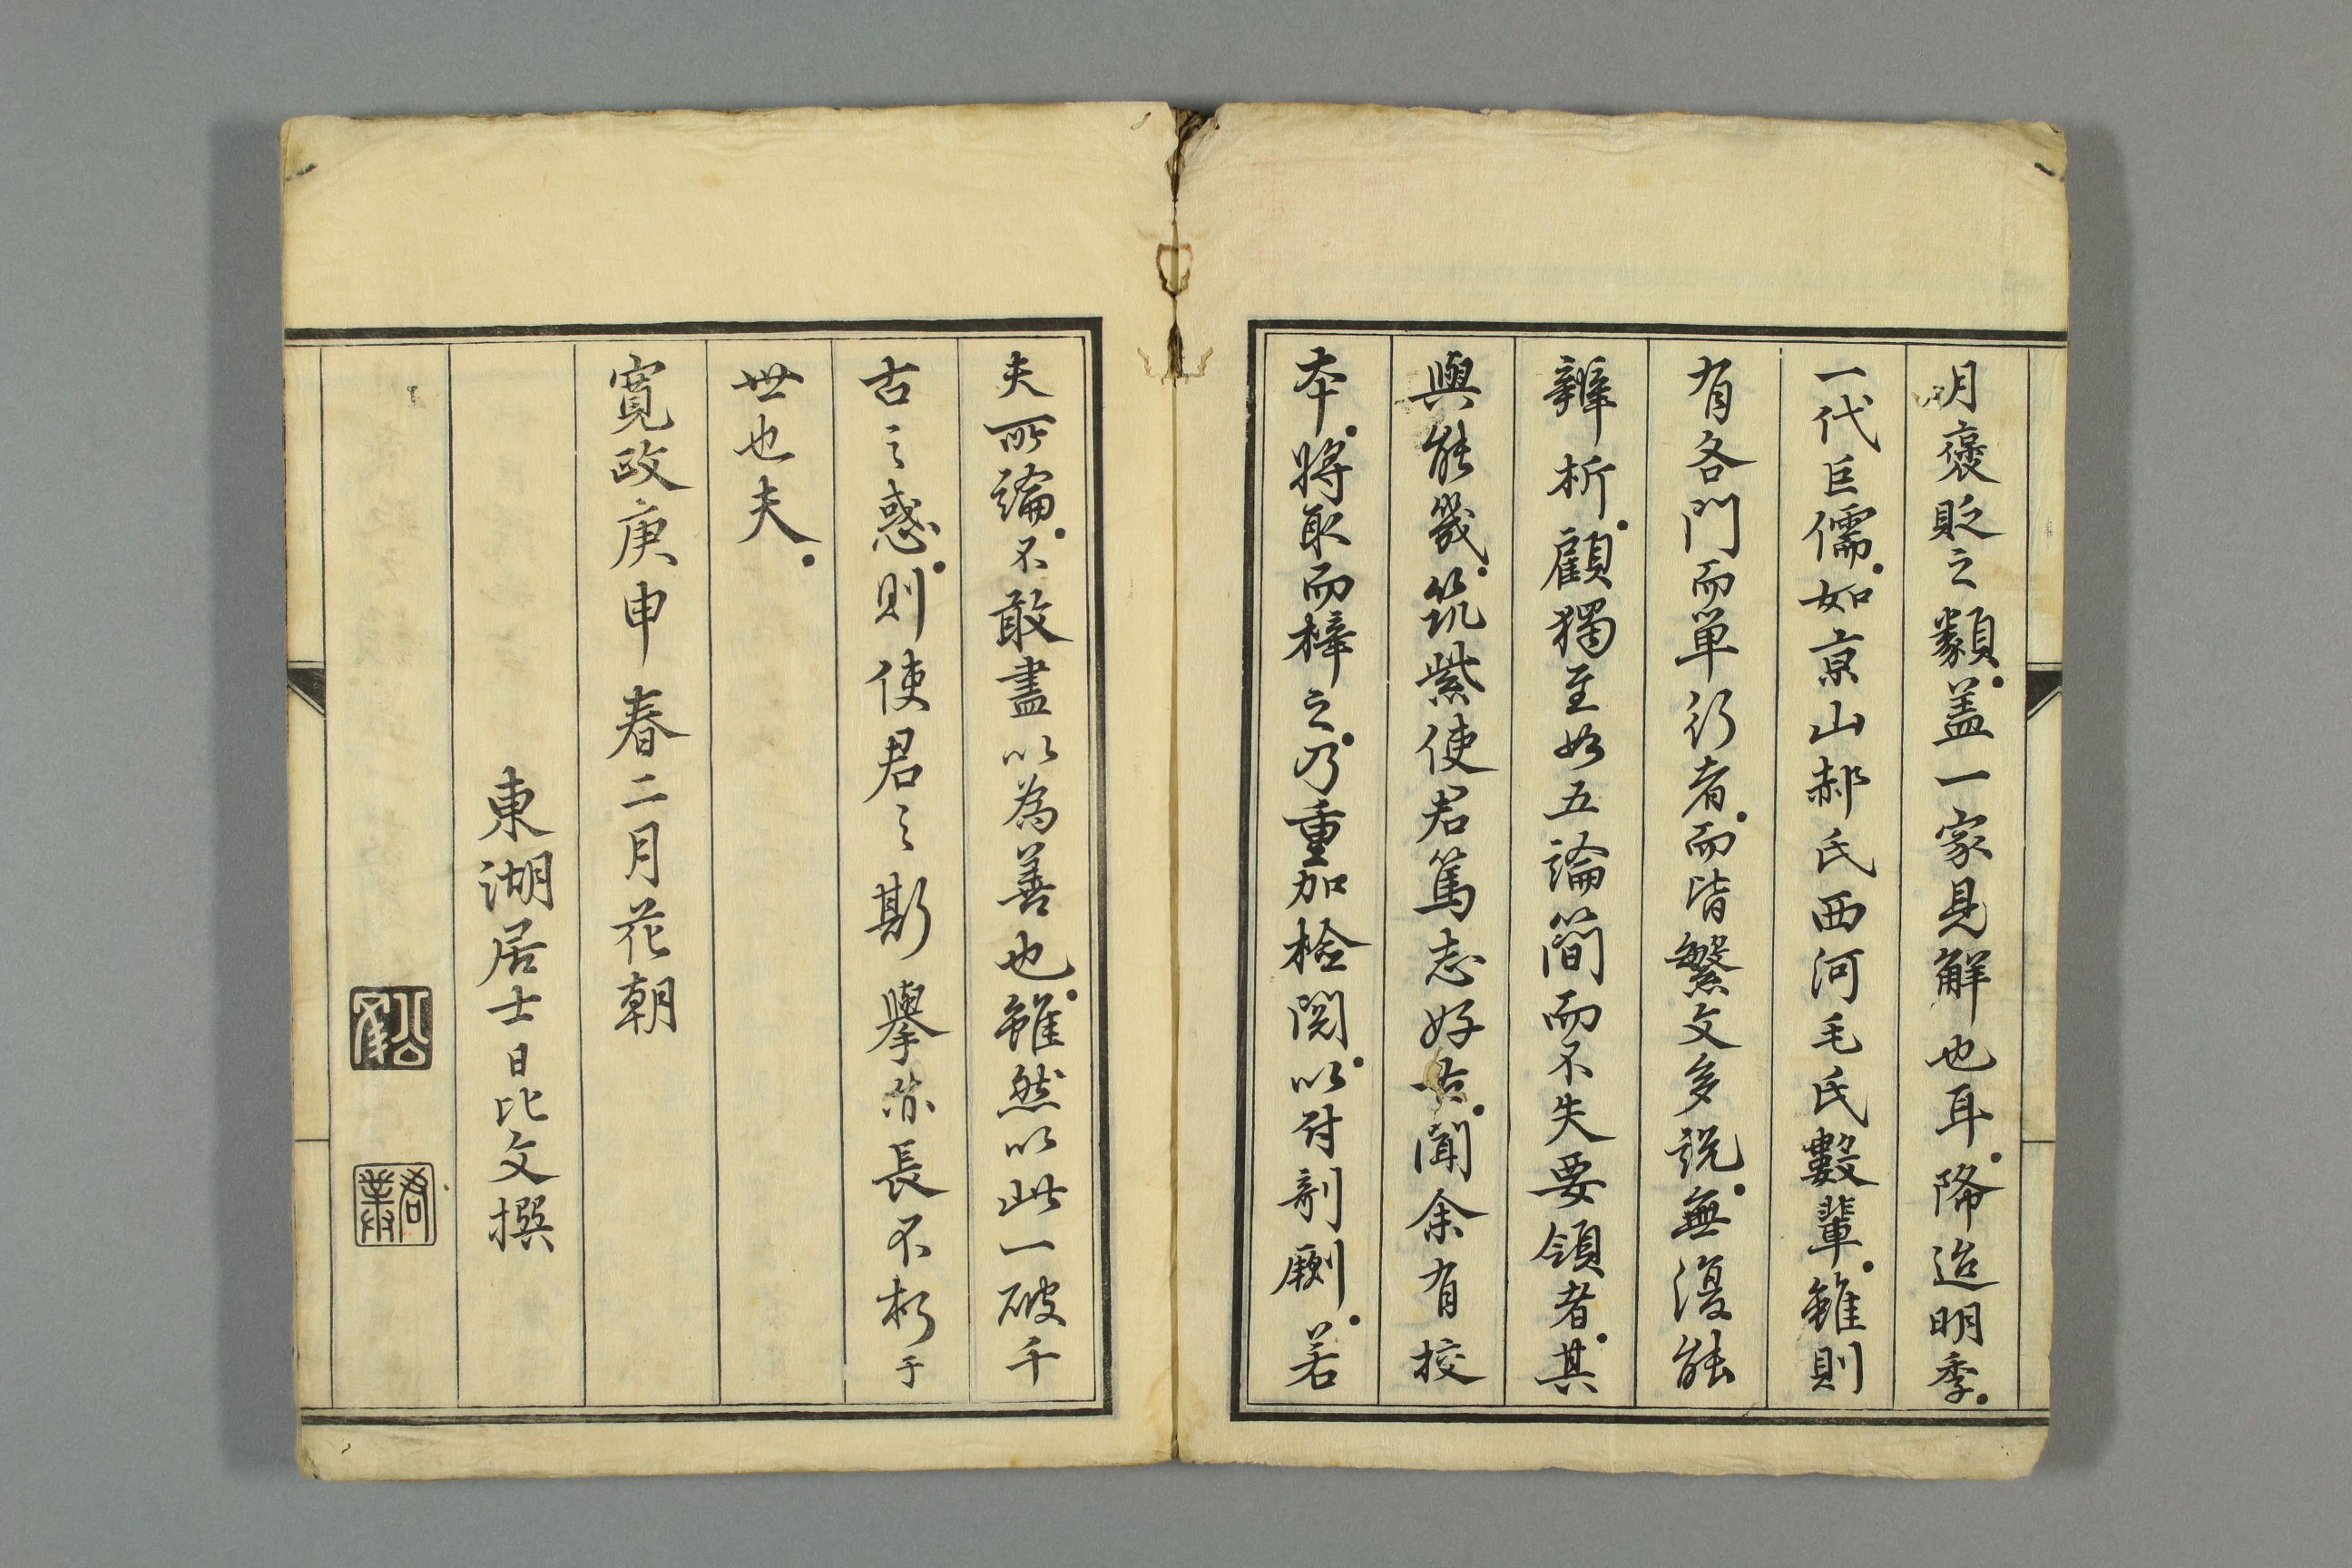 月褒貶之類。盖一家見解也耳。降迨明季。
一代巨儒。如京山郝氏西河毛氏數輩。雖則
有各門而単行者。而皆繁文多説。無復能
辨析。顧獨至如五論簡而不失要領者。其
與能幾。筑紫使君篤志好古。聞余有校
本。將取而梓之。乃重加檢閲。以付剞劂。若
夫所論。不敢盡以為善也。雖然以此一破千
古之惑。則使君之斯擧亦長不朽于
世也夫。
寛政庚申春二月花朝
東湖居士日比文撰